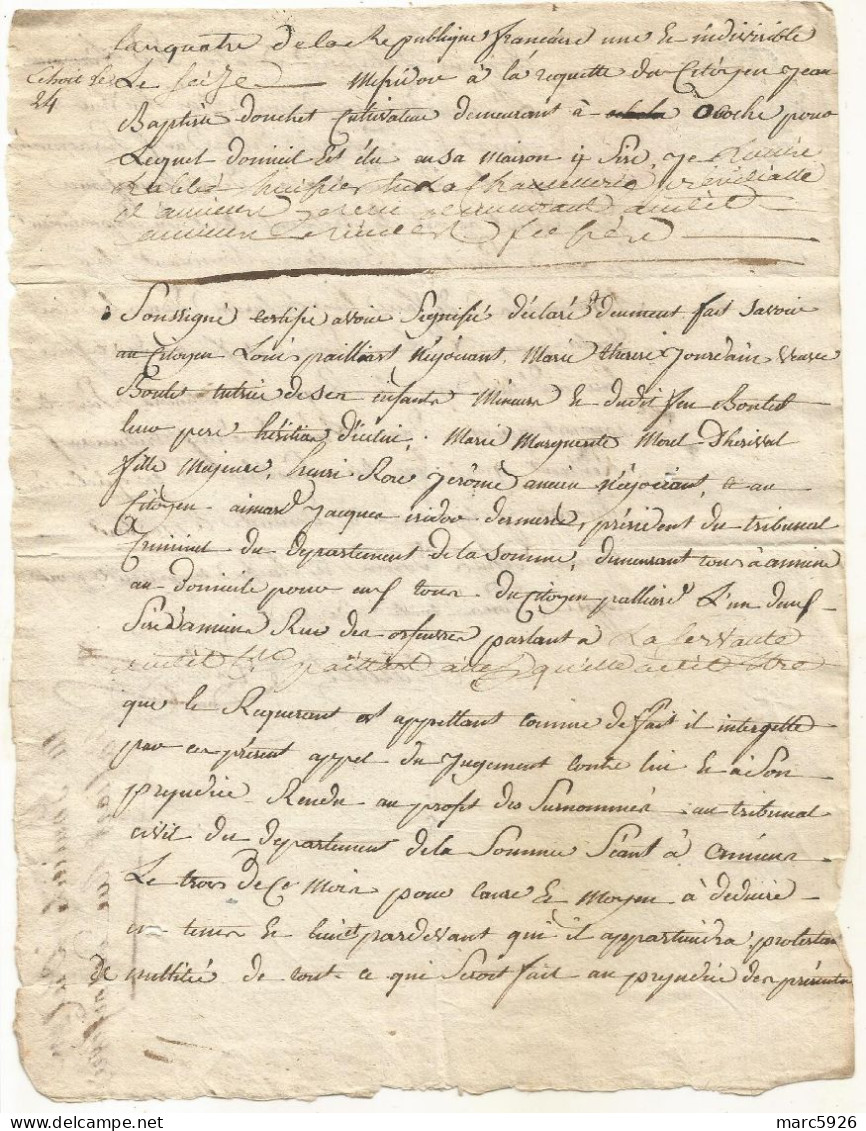 Lan quatre de la Republique francaise une et indivisible
Le seize Messidor à la requette du Citoyen Jean
24
Baptiste douchet Cultivateur demeurant à Ocoche pour
Lequel domicil est élu en sa maison
Soussigné certifie avoir Signifié déclaré et deument fait Savoir
au Citoyen Loui pailliart Négociant, Marie therese Jourdain veuve
Boulet tutrice de ses enfants Mineurs et dudit feu Boulet
leur pere héritiers d'icelui, Marie Marguerite Morel Dherival
fille Majeure, henri Rose Jerôme ancien Négociant, et au
Citoyen aimard Jacques isidor , président du tribunal
Criminel du departement de la Somme, demeurant tous à amiens
au Domicile pour eux tous du Citoyen palliard L'un deux
Sis à amiens Rue des orfevres parlant a La Servante
dudit paillart
que le Requerant est appellant comme de fait il interjette
par ces présent appel du Jugement contre lui et à Son
prejudice Rendu au profit des Surnommés au tribunal
civil du departement de la Somme Séant à amiens
Le trois de Ce Mois pour cause et moyen à deduire
en tems et lieu et pardevant qui il appartiendra protestan
de nullité de tout ce qui Seroit fait au prejudice des présente
marc5926